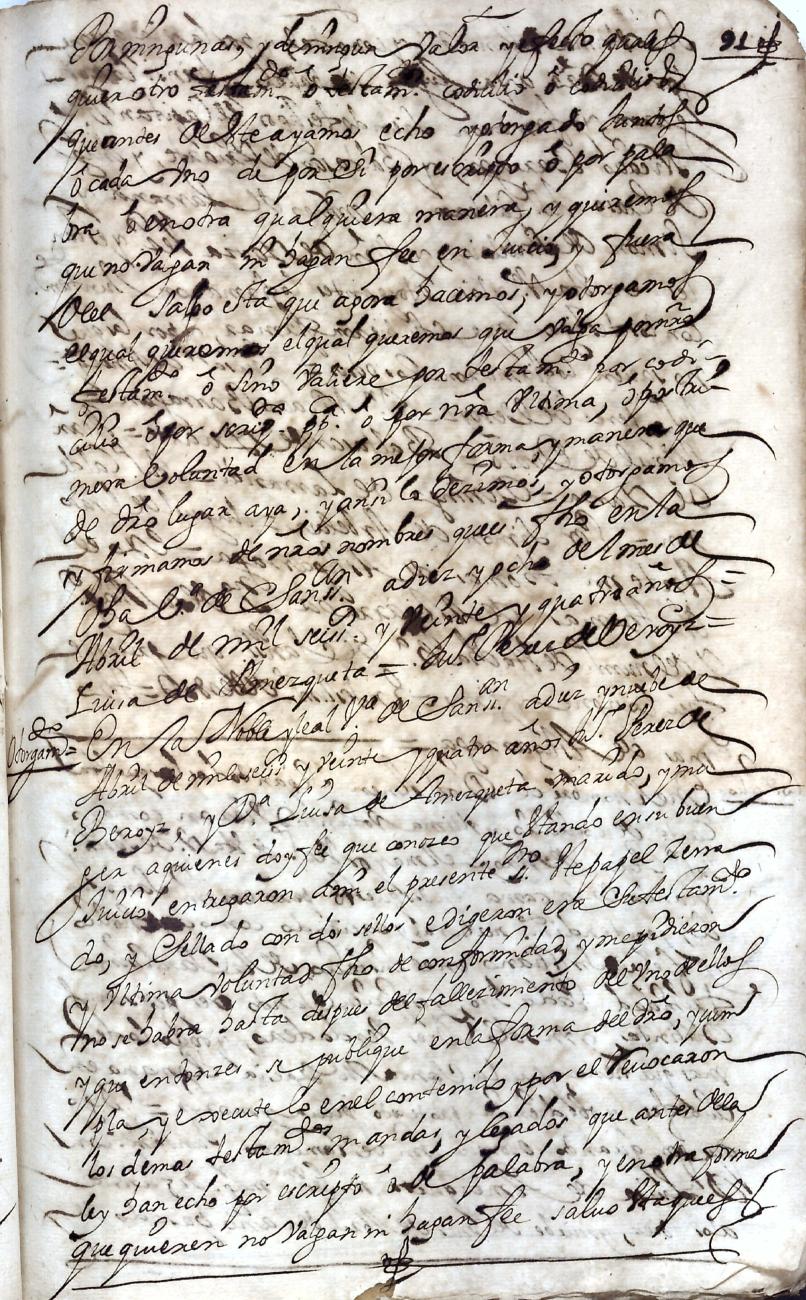 91
por ningunas, y de ningun valor y efecto quales
quier otro testamdo ô testamto codicilio ô codicilios
que antes deste ayamos echo y otorgado Juntos
ô cada Uno de por Si por escripto ô por pala
bra ô en otra qualquiera manera, y queremos
que no Valgan ni hagan fee en Juicio, y fuera
del salbo esta que agora hacemos, y otorgamos
el qual queremos el qual queremos que Valga por nro
testamdo ô sino Valiere por testamdo por codi=
cilio = ô por scripda ppca ô por nra Ultima, ô postri=
mera Voluntad en la mejor forma, y manera que
de dro lugar aya, y ansi lo dezimos, y otorgamos
y firmamos de nros nombres que es fho en la
dha Va de Sansn a diez y ocho del mes de
Abril de mil seiss y Veinte y quatro años =
Luisa de Amezqueta = Ju. Perez de Beroyz =
Otorgamdo = En la Noble y leal Va de Sansn a diez y nuebe de
Abril de mil seiss y Veinte y quatro años Ju. Perez de
Beroyz, y Da Luisa de Amezqueta marido, y mu
ger a quienes doy fee que conozco que estando en su buen
Juicio entregaron a mi el presente sno este papel zerra
do, y Sellado con dos sellos e digeron era Su testamdo
y Ultima Voluntad fho de conformidad, y me pidieron
no se habra hasta despues del fallezimiento del Uno dellos
y que entonzes se publique en la forma del dro, y cum
pla, y execute lo en el contenido, y por el Revocaron
los demas testamdos mandas, y legados que antes della
ley han echo por escripto ô de palabra, y en otra forma
que quieren no Valgan ni hagan fee salbo esta que es